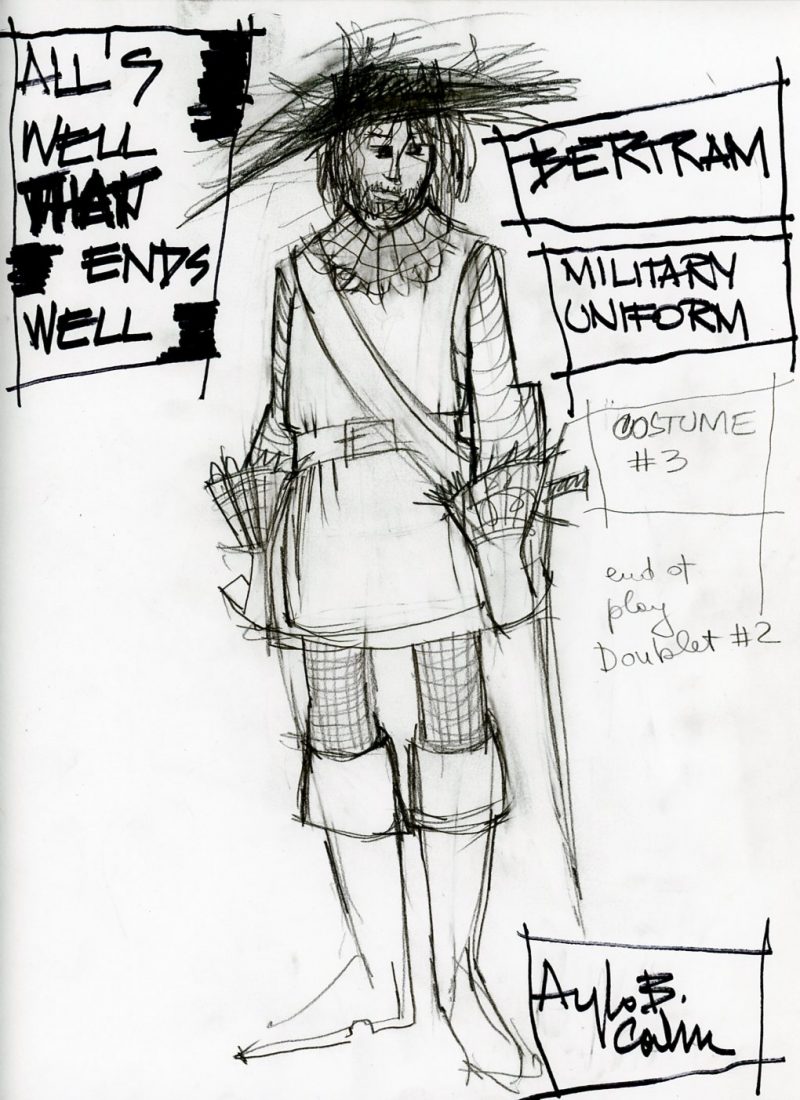 ALL'S
WELL
THAT
ENDS
WELL
BERTRAM
MILITARY
UNIFORM
COSTUME
#3
end of
play
Doublet #2
B.